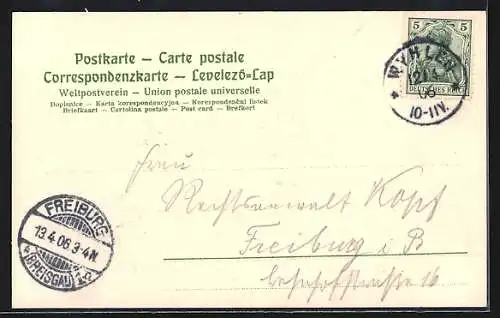 Postkarte – Carte postale
Correspondenzkarte – Levelező-Lap
Weltpostverein – Union postale universelle
Dopisnice – Karta korespondencyjna – Korespondenční lístek
Briefkaart – Cartolina postale – Post card – Brefkort
5 5
DEUTSCHES REICH
WYHLEN
06
10-11V.
Frau
Rechtsanwalt Kopf
Freiburg i B
Bahnhofstrasse 16
FREIBURG
13.4.06 3-4N
(BREISGAU)